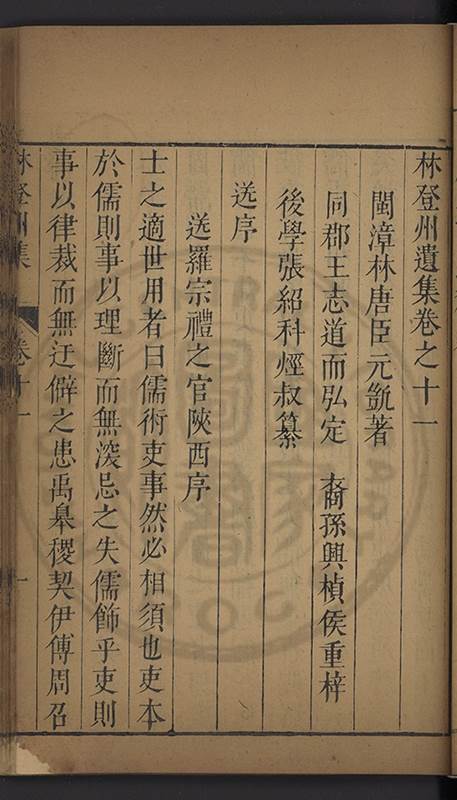 林登州遺集卷之十一
閩漳林唐臣元凱著
同郡王志道而弘定　裔孫興楨侯重梓
後學張紹科烴叔纂
送序
送羅宗禮之官陝西序
士之適世用者曰儒術吏事然必相須也吏本
於儒則事以理斷而無深忌之失儒飾乎吏則
事以律裁而無迂僻之患禹皋稷契伊傅周召
林登州集　卷十一　一